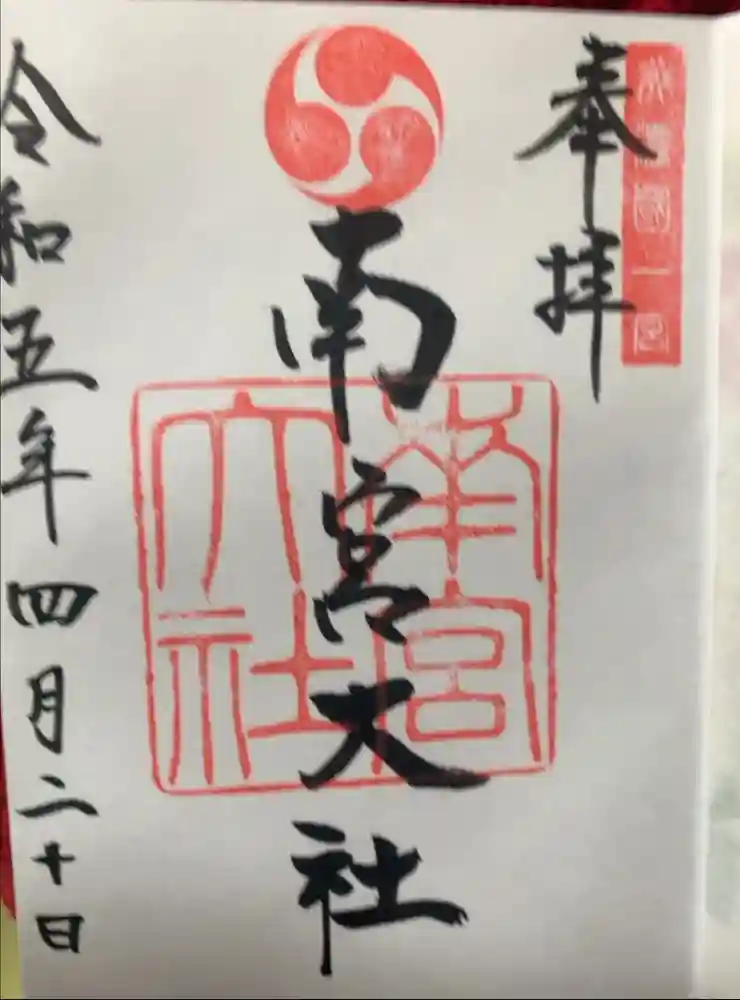 奉拝
美濃國一宮
南宮大社
南宮大社
令和五年四月二十日